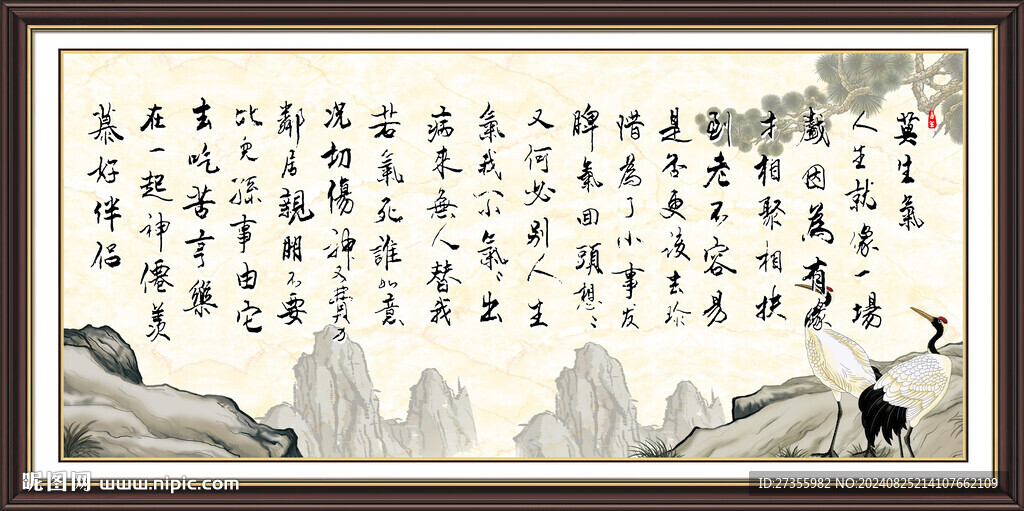 莫生氣
人生就像一場
戲因為有緣
才相聚相扶
到老不容易
是否更該去珍
惜為了小事发
脾氣回頭想〻
又何必别人生
氣我不氣〻出
病來無人替我
若氣死誰如意
况切傷神又費力
鄰居親朋不要
比兒孫事由它
去吃苦享樂
在一起神僊羡
慕好伴侣
昵图网 www.nipic.com
ID:27355982 NO:20240825214107662109